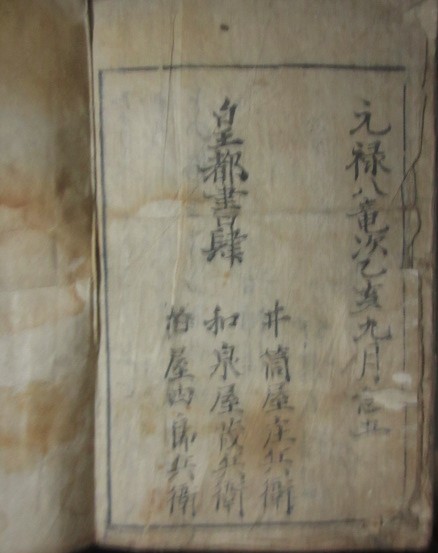 元禄八竜次乙亥九月吉旦
皇都書肆
井筒屋庄兵衛
和泉屋茂兵衛
柏屋四郎兵衛